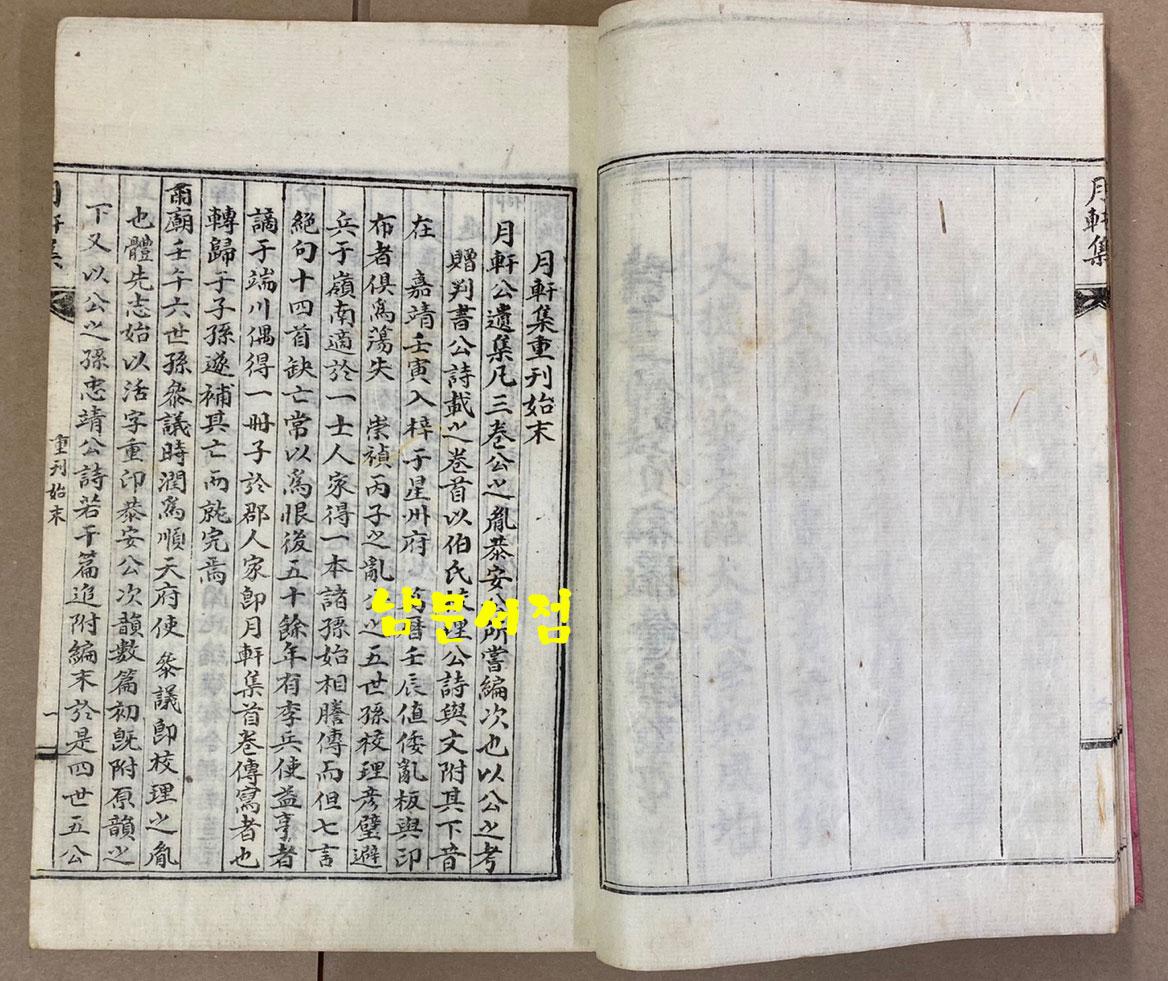 月軒集
月軒集重刊始末
月軒公遺集凡三卷公之胤恭安公所嘗編次也以公之考
贈判書公詩載之卷首以伯氏校理公詩與文附其下昔
在 嘉靖壬寅入梓于星州府 萬曆壬辰值倭亂板與印
布者俱爲蕩失 崇禎丙子之亂公之五世孫校理彦璧避
兵于嶺南適於一士人家得一本諸孫始相謄傳而但七言
絶句十四首缺亡常以爲恨後五十餘年有李兵使益亨者
謫于端川偶得一冊子於郡人家卽月軒集首卷傳寫者也
轉歸于子孫遂補其亡而就完焉
肅廟壬午六世孫叅議時潤爲順天府使 叅議卽校理之胤
也體先志始以活字重印恭安公次韻數篇初旣附原韻之
下又以公之孫忠靖公詩若干篇追附編末於是四世五公
月軒集
重刊始末
一
남문서점